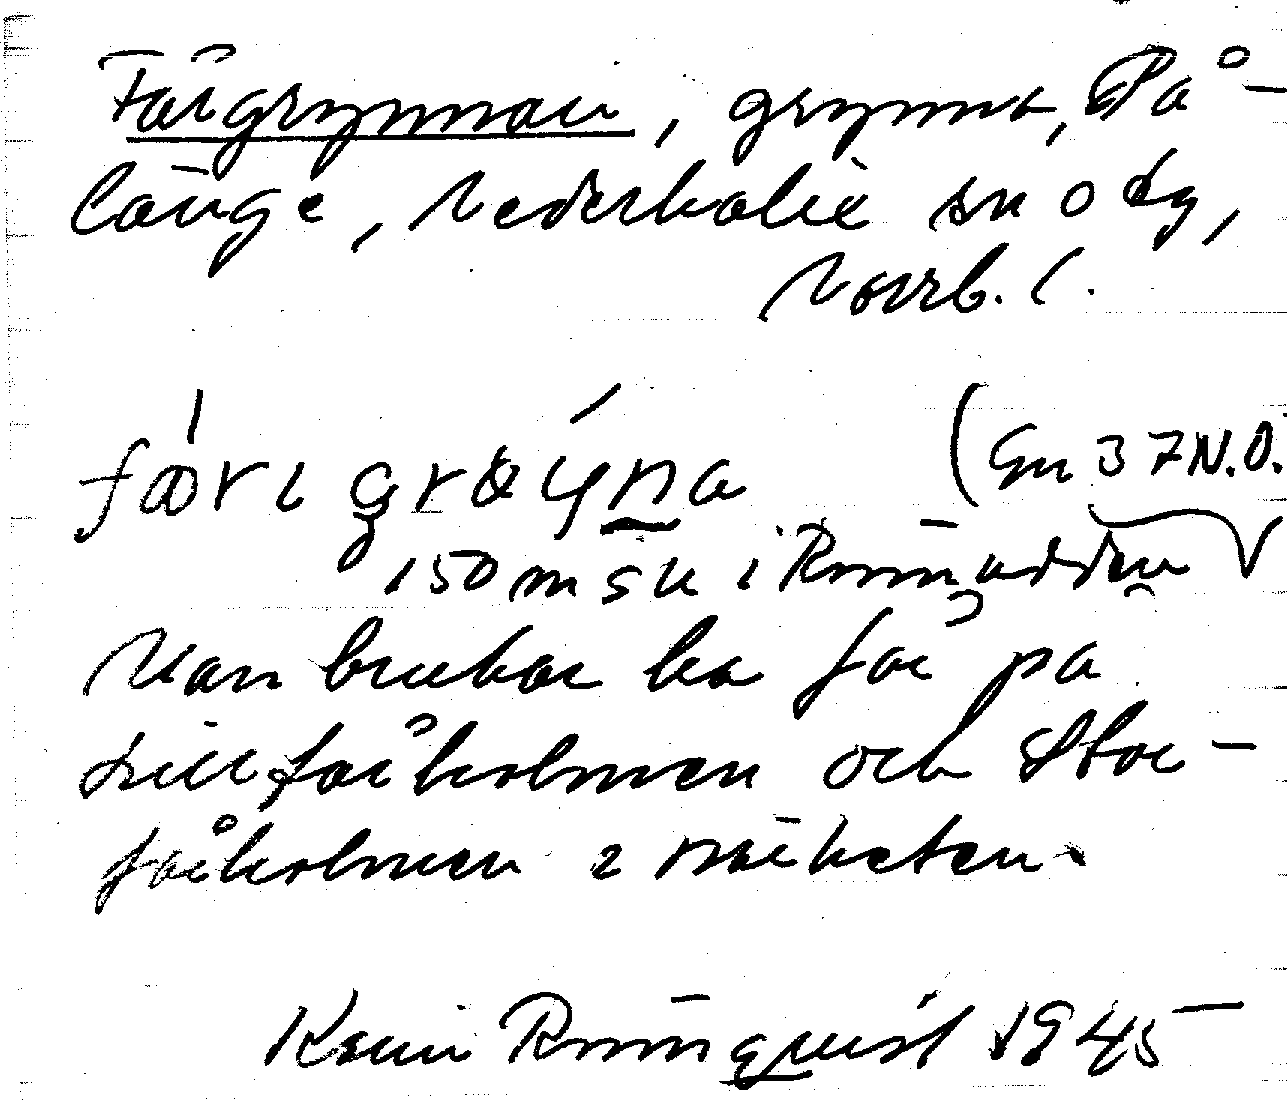 Fårgrynnan, grynna, På-
länge, Nederkalix sn o tg,
Norrb. l.
(En 37 N.O.
150 m SV i Rönnudden
Man brukar ha får på
Lillfårholmen och Stor-
fårholmen i närheten.
Karin Rönnqvist 1945